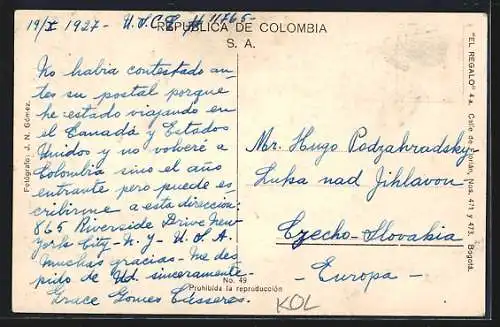 19/X 1927- U.S.C.E. # 11765-
REPÚBLICA DE COLOMBIA
S. A.
No habia contestado an-
tes su postal porque
he estado viajando en
el Canadá y Estados
Unidos y no volveré a
Colombia sino el año
entrante pero puede es-
cribirme a esta dirección:
865 Riverside Drive New-
York City - N. Y - U. S. A.
Muchas gracias - Me des-
pido de Ud. sinceramente-
Grace Gomes Cásseres.
Mr. Hugo Podzahradsky
Luka nad Jihlavou
Czecho-Slovakia
- Europa -
No. 49
Prohibida la reproducción
KOL
Fotógrafo: J. N. Gómez.
"EL REGALO" 4a. Calle de Florián, Nos. 471 y 473. Bogotá.